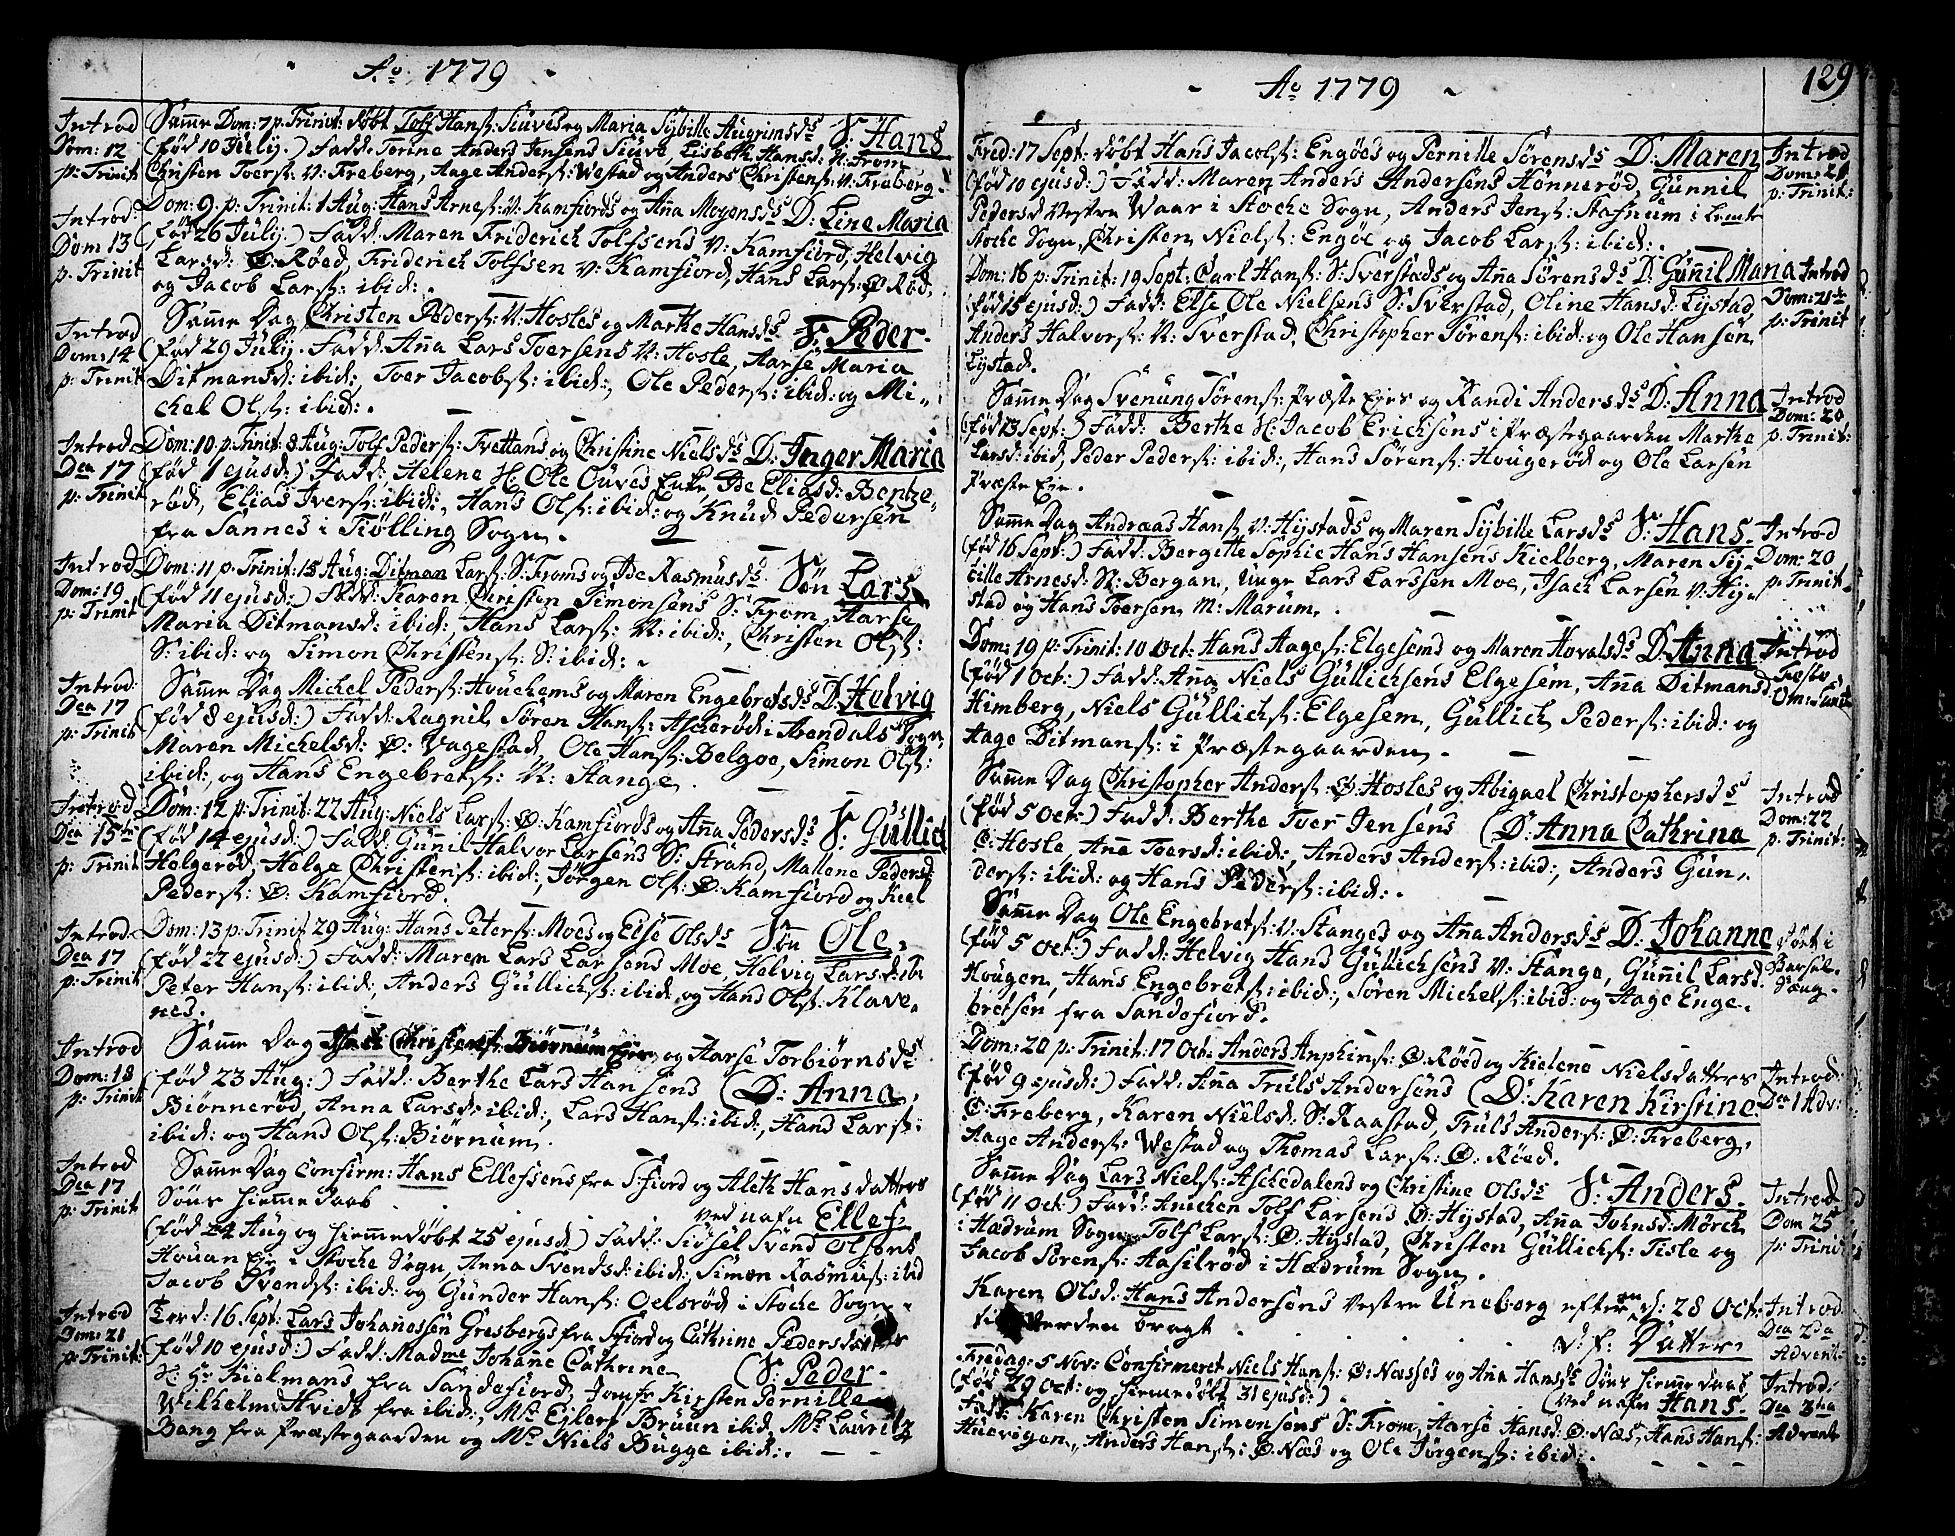 Ao 1779
Introd Dom: 12 p: Trinit
Samme Dom: 7 p. Trinit: døbt Tolf Hans: Siuves og Maria Sybille Augrimsds S. Hans
(fød 10 Julij.) Fadd: Torine Anders Jensens Siuve, Lisbeth Hansd: N: From
Christen Toersn: N: Freberg, Aage Andersn: Westad og Anders Christensn: N: Freberg.
Introd: Dom 13 p: Trinit
Dom: 9. p: Trinit: 1 Aug: Hans Arnesn: N: Kamfiords og Aña Mogensds D: Line Maria
(fød 26 Julij) Fadd: Maren Friderich Tolfsens N: Kamfiord, Helvig
Larsd: Ø: Røed, Friderich Tolfsen N: Kamfiord, Hans Larsn: Ø Rød,
og Jacob Larsn: ibid:.
Introd Dom: 14 p: Trinit
Samme Dag Christen Pedersn: N: Hosles og Marthe Hansds S. Peder.
(fød 29 Julij. Fadd: Aña Lars Toersens N: Hosle, Aarse Maria
Ditmansd: ibid:, Toer Jacobsn: ibid:, Ole Pedersn: ibid: og Mi-
chel Olsn: ibid:.
Introd Dca 17 p: Trinit
Dom: 10 p: Trinit: 8 Aug: Tolf Pedersn: Tvettans og Christine Nielsds D. Inger Maria
(fød 1 ejusd:) Fadd: Helene H: Ole Ouves Enke, Ide Eliasd: Bentze-
rød, Elias Iversn: ibid:, Hans Olsn: ibid: og Knud Pedersen
fra Sannes i Tiølling Sogn.
Introd Dom: 19 p: Trinit
Dom: 11 p: Trinit: 15 Aug: Ditman Larsn: S: Froms og Ide Rasmusds Søn Lars
(fød 11 ejusd:) Fadd: Karen Christen Simonsens S: From, Aarse
Maria Ditmansd: ibid:, Hans Larsn: N: ibid:, Christen Olsn:
S: ibid: og Simon Christensn: S: ibid:.
Introd: Dca 17 p: Trinit
Samme Dag Michel Pedersn: Houchems og Maren Engebretsds D. Helvig
(fød 8 ejusd:) Fadd: Ragnil Søren Hansn: Ascherød i Arendals Sogn,
Maren Michelsd: Ø: Vagestad, Ole Hansn: Belgoe, Simon Olsn:
ibid:, og Hans Engebretsn: N: Stange.
Introd: Dca 15de p: Trinit
Dom: 12 p: Trinit: 22 Aug: Niels Larsn: Ø: Kamfiords og Aña Pedersds S. Güllich
(fød 14 ejusd:) Fadd: Gunil Halvor Larsens S: Strand, Mallene Pedersd
Helgerød, Helge Christensn: ibid:, Jørgen Olsn: Ø: Kamfiord og Kield
Pedersn: Ø: Kamfiord.
Introd: Dca 17 p: Trinit
Dom: 13 p: Trinit 29 Aug: Hans Petersn: Moes og Else Olsds Søn Ole.
(fød 22 ejusd:) Fadd: Maren Lars Larsens Moe, Helvig Larsd: ibi
Peter Hansn: ibid:, Anders Güllichsn: ibid: og Hans Olsn: Klave-
nes.
Introd Dom: 18 p: Trinit
Samme Dag Christensn: Biørnum Eie og Aarse Torbiørnsds
(fød 23 Aug:) Fadd: Berthe Lars Hansens (D: Anna,
Biønnerød, Anna Larsd: ibid:, Lars Hansn: ibid:, Hans Larsn:
ibid: og Hans Olsn: Biørnum.
Introd Dca 17 p: Trinit
Samme Dag confirm: Hans Ellefsens fra Sfiord og Aleth Hansdatters
Søns hiemme daab ved nafn Ellef
(fød 24 Aug og hiemmedøbt 25 ejusd) Fadd: Sidsel Svend Olsens
Houan Eje i Stoche Sogn, Anna Svendsd: ibid:, Simon Rasmusn: ibid
Jacob Svendsn: ibid: og Gunder Hansn: Oelsrød i Stoche Sogn.
Introd Dom: 21 p: Trinit:
Torsd: 16 Sept: Lars Johanesen Gresbergs fra Sfiord og Cathrine Pedersdatters
(fød 10 ejusd:) Fadd: Madme Johane Cathrine (S: Peder.
Kielmans fra Sandefiord, Jomfr Kirsten Pernille
Wilhelms Hvidt fra ibid:, Mr Ejlert Bruun ibid, Mr Lauritz
Bang fra Præstegaarden og Mr Niels Bugge ibid:.
Ao 1779
129
Fred: 17 Sept: døbt Hans Jacobsn: Engøes og Pernille Sørensds D: Maren
(fød 10 ejusd:) Fadd: Maren Anders Andersens Hønnerød, Gunnil
Pedersd Vestre Waar i Stoche Sogn, Anders Jensn: Stafnum i bemte
Stoche Sogn, Christen Nielsn: Engøe og Jacob Larsn: ibid:.
Introd Dom: 21 p: Trinit:
Dom: 16 p: Trinit: 19 Sept: Carl Hansn: S: Sverstads og Aña Sørensds D. Guñil Maria
(fød 15 ejusd:) Fadd: Else Ole Nielsens S: Sverstad, Oline Hansd: Lystad,
Anders Halvorsn: N: Sverstad, Christopher Sørensn: ibid: og Ole Hansen
Lystad.
Introd Dom: 21de p: Trinit
Samme Dag Svenung Sørensn: Præste Ejes og Randi Andersds D. Anna
(fød 13 Sept:) Fadd: Berthe H: Jacob Erichsens i Præstegaarden Marthe
Larsd: ibid, Peder Pedersn: ibid:, Hans Sørensn: Hougerød og Ole Larsen
Præste Eje.
Introd Dom: 20 p: Trinit:
Samme Dag Andreas Hansn N: Hystads og Maren Sybille Larsds S: Hans.
(fød 16 Sept:) Fadd: Bergette Sophie Hans Hansens Kielberg, Maren Sy-
bille Arnesd: N: Bergan, Unge Lars Larssen Moe, Isach Larsen N: Hy-
stad og Hans Toersen M: Marum.
Introd Dom: 20 p: Trinit
Dom: 19 p: Trinit: 10 Oct: Hans Aagesn: Elgesems og Maren Hovalsds D: Anna
(fød 1 Oct:) Fadd: Aña Niels Güllichsens Elgesem, Aña Ditmansd
Himberg, Niels Güllichsn: Elgesem, Güllich Pedersn: ibid: og
Aage Ditmansn: i Præstegaarden.
Introd Festo Om: Sanct
Samme Dag Christopher Andersn: Ø: Hosles og Abigael Christophersds
(fød 5 Oct:) Fadd: Berthe Toer Jensens (D: Anna Cathrina
Ø: Hosle, Aña Toersd: ibid:, Anders Andersn: ibid:, Anders Gun-
dersn: ibid: og Hans Pedersn: ibid:.
Introd Dom: 22 p: Trinit:
Samme Dag Ole Engebretsn: N: Stanges og Aña Andersds D. Johanne
(fød 5 Oct:) Fadd: Helvig Hans Güllichsens N: Stange, Guñil Larsd:
Hougen, Hans Engebretsn: ibid:, Søren Michelsn: ibid: og Aage Enge-
bretsen fra Sandefiord.
døet i Barsel- Sæng.
Dom: 20 p: Trinit: 17 Oct: Anders Anphinsn: Ø: Røed og Kielene Nielsdatters
(fød 9 ejusd:) Fadd: Aña Truls Andersens (D: Karen Kirstine
Ø: Freberg, Karen Nielsd: S: Raastad, Truls Andersn: Ø: Freberg,
Aage Andersn: Westad og Thomas Larsn: Ø: Røed.
Introd: Dca 1 Adv:
Samme Dag Lars Nielsn: Aschedalens og Christine Olsds S: Anders.
(fød 11 Oct:) Fadd: Anichen Tolf Larsens Ø: Hystad, Aña Johnsd: Mørch
i Hædrum Sogn, Tolf Larsn: Ø: Hystad, Christen Güllichsn: Tisle og
Jacob Sørensn: Hasilrød i Hædrum Sogn.
Introd Dom 25 p: Trinit
Karen Olsd: Hans Andersens Vestre Uneborg efterm. d: 28 Oct:
til Verden bragt d. f. Datter
Introd Dca 2da Advent
Fredag: 5 Nov: Confirmeret Niels Hansn: Ø: Næsses og Aña Hansds Søns hiemme daab
(fød 29 Oct: og hiemmedøbt 31 ejusd:) (ved nafn Hans.
Fadd: Karen Christen Simonsens S: From, Aarse Hansd: Ø: Næs, Hans Hansn:
Huevogen, Anders Hansn: Ø: Næs og Ole Jørgensn: ibid:.
Introd: Dca 3tia Advent